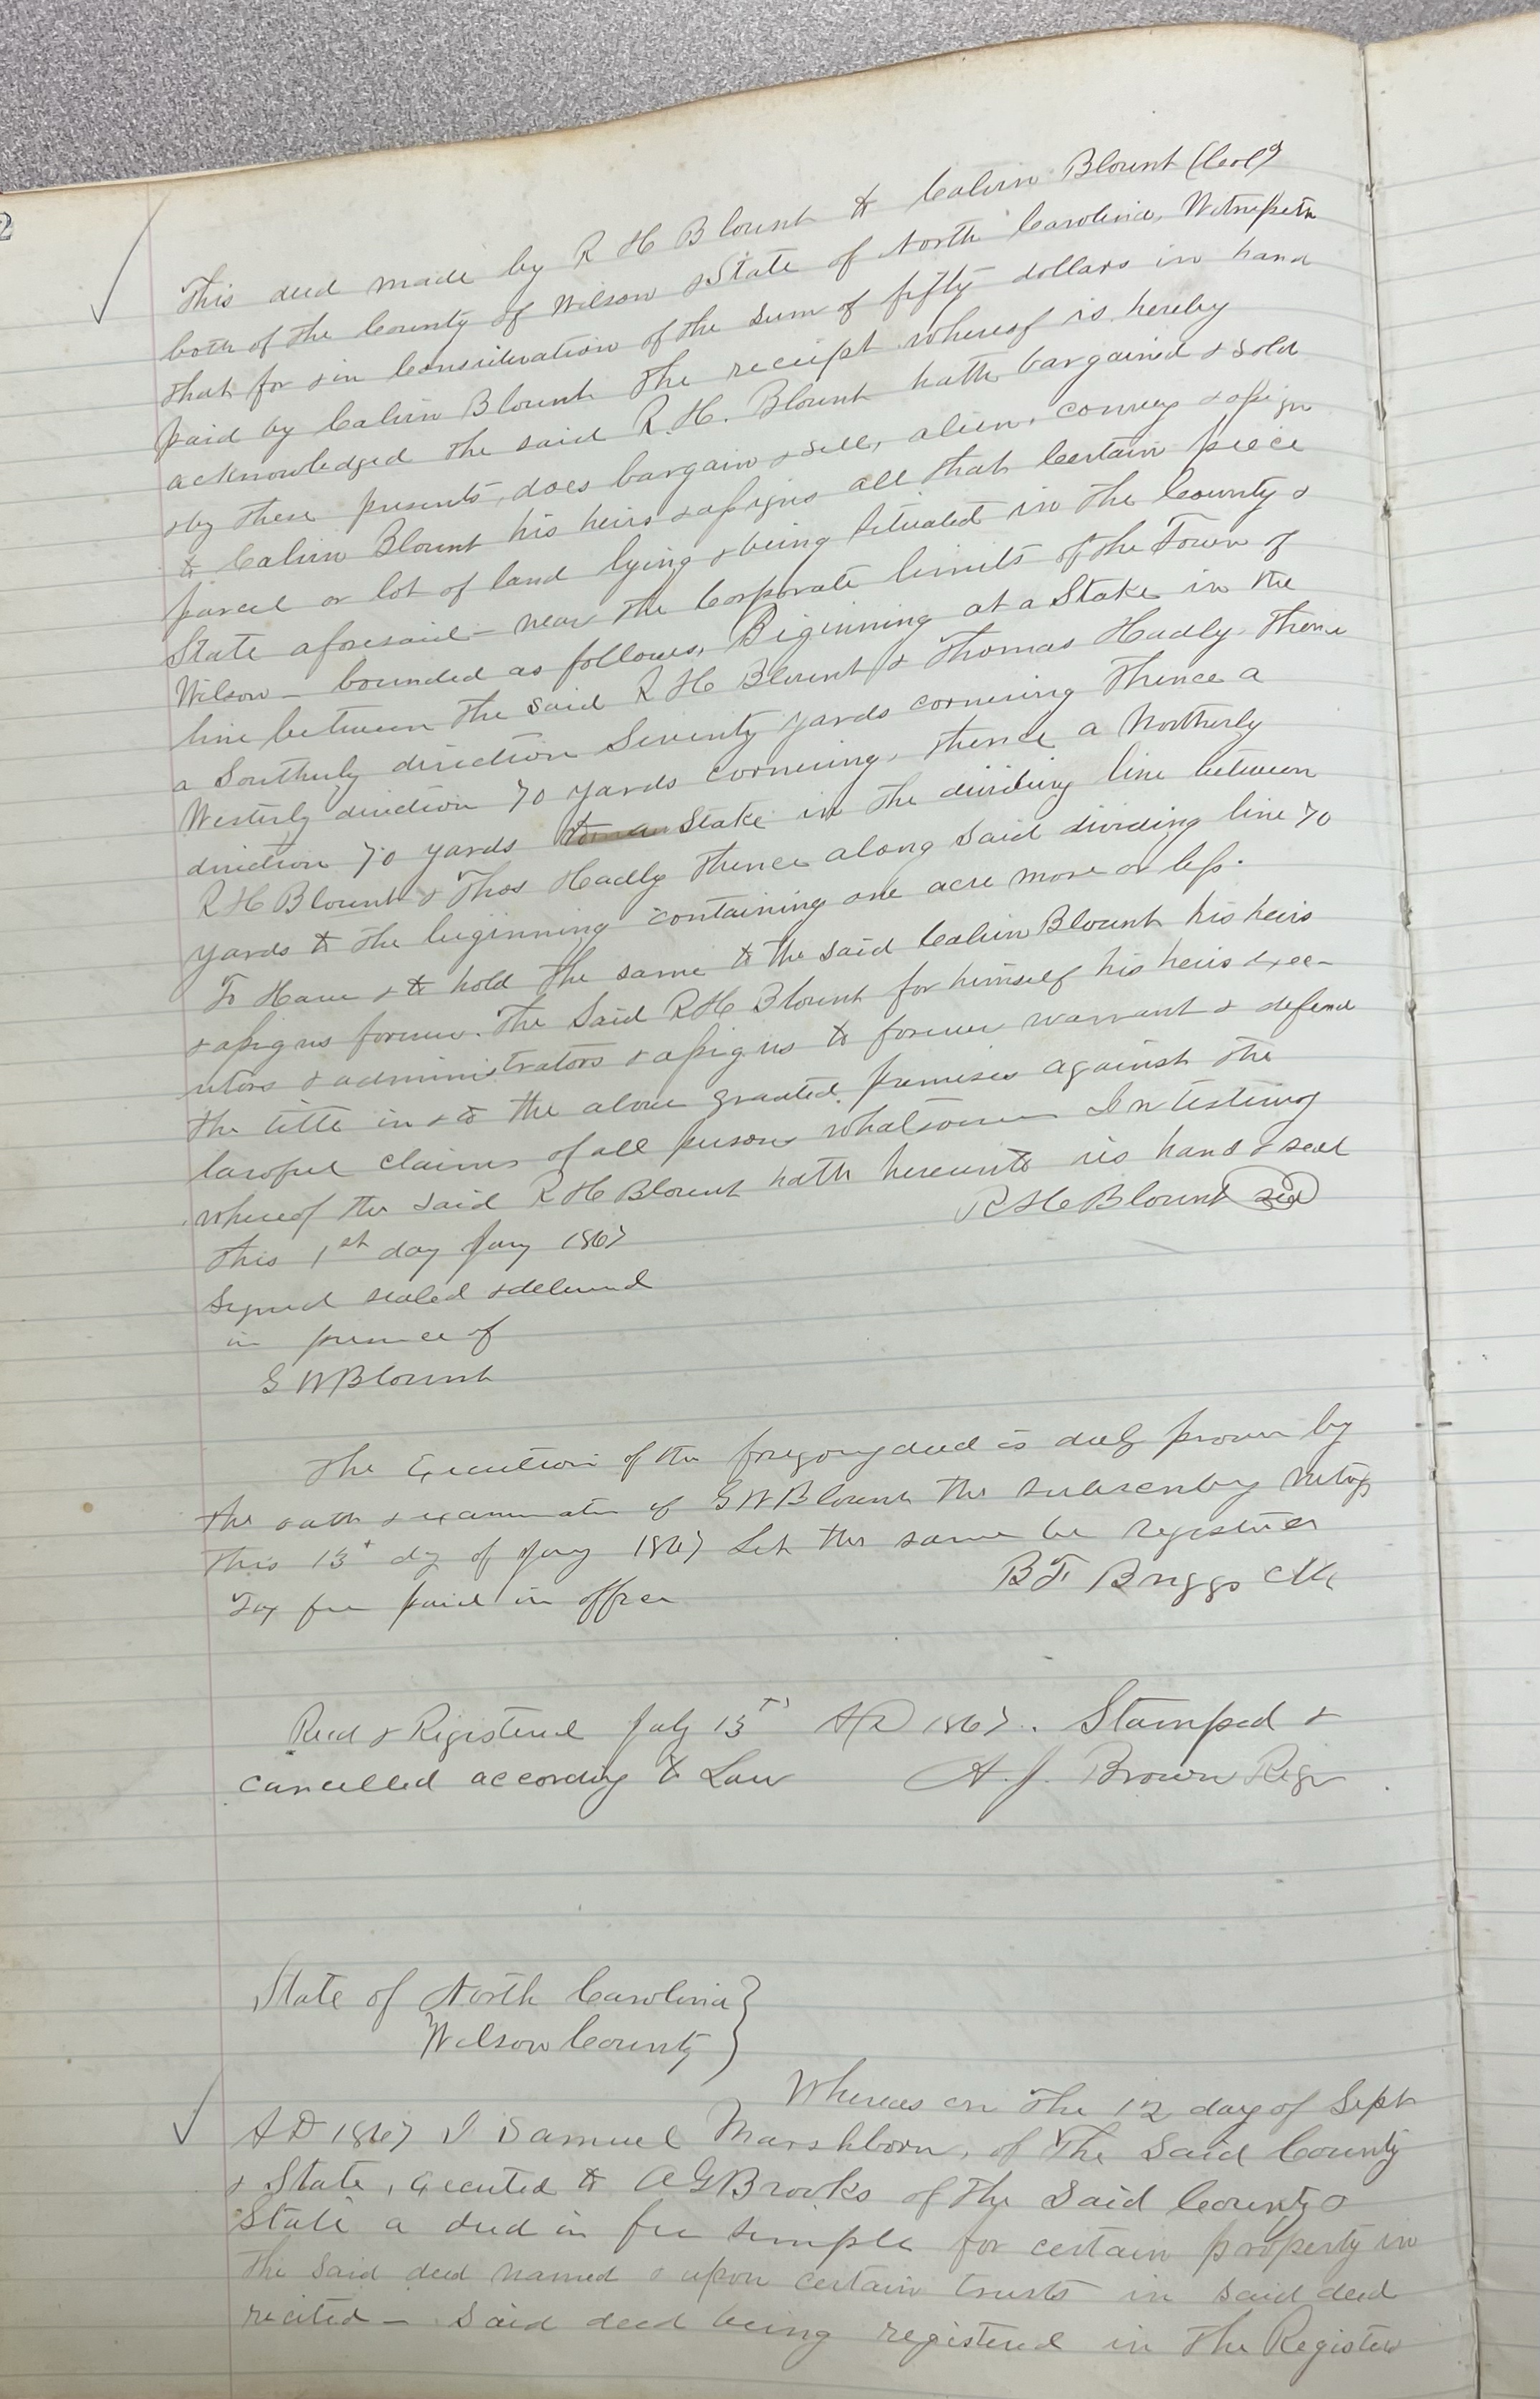 2
This deed made by R H Blount to Calvin Blount (Cold)
both of the County of Wilson & State of North Carolina, Witnesseth
that for & in Consideration of the sum of fifty dollars in hand
paid by Calvin Blount the receipt whereof is hereby
acknowledged the said R. H. Blount hath bargained & sold
& by these presents, does bargain & sell, alien, convey & assign
to Calvin Blount his heirs & assigns all that Certain piece
parcel or lot of land lying & being situated in the County &
State aforesaid - near the Corporate limits of the Town of
Wilson - bounded as follows, Beginning at a Stake in the
line between the said R H Blount & Thomas Hadly thence
a Southerly direction Seventy yards cornering thence a
Westerly direction 70 yards cornering, thence a Northerly
direction 70 yards Stake in the dividing line between
R H Blount & Thos Hadly thence along said dividing line 70
yards to the beginning containing one acre more or less.
To Have & to hold the same to the said Calvin Blount his heirs
& assigns forever. The Said R H Blount for himself his heirs exec-
utors & administrators & assigns to forever warrant & defend
the title in & to the above granted premises against the
lawful claims of all persons whatsoever In testimony
whereof the said R H Blount hath hereunto his hand & seal
this 1st day Jany 1867 R H Blount seal
Signed sealed & delivered
in presence of
G W Blount
The Execution of the foregoing deed is duly proven by
the oath & examination of G W Blount the subscribing witness
this 13t dy of Jany 1867 Let the same be registered
Tax fee paid in office B F Briggs Clk
Recd & Registered July 13th AD 1867. Stamped &
cancelled according to Law A. J. Brown Regr
State of North Carolina }
Wilson County }
Whereas on the 12 day of Sept
AD 1867 I Samuel Marshborn, of the said County
& State, executed to A G Brooks of the said County &
State a deed in fee simple for certain property in
the said deed named & upon certain trusts in said deed
recited - said deed being registered in the Registers